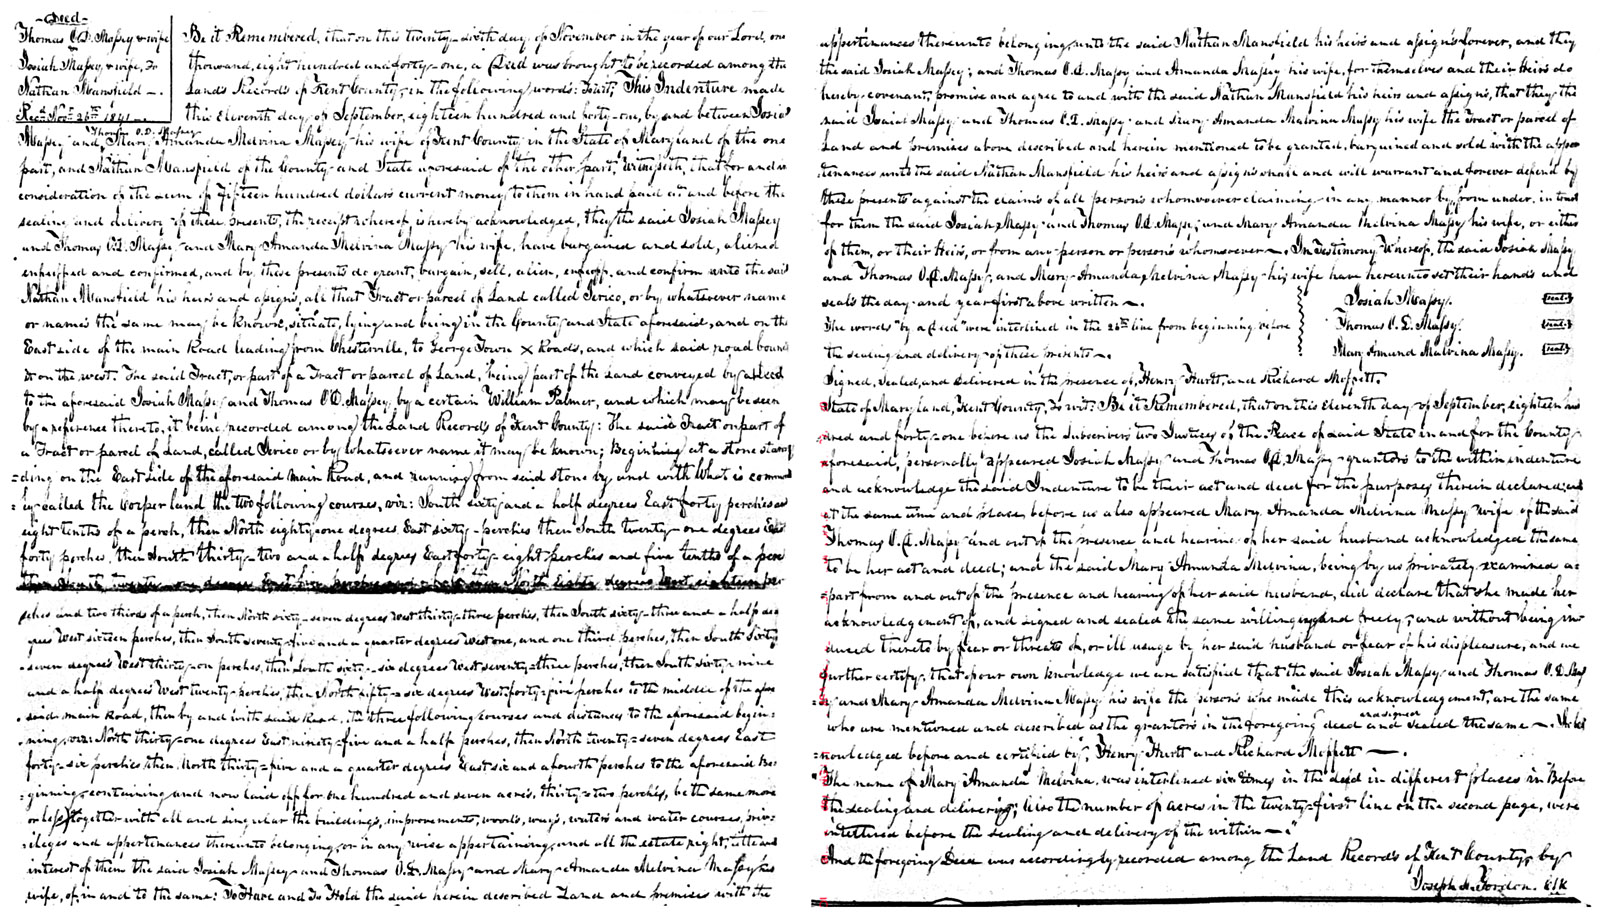 -Deed-
Thomas C.D. Massey & wife
Josiah Massey, & wife, To
Nathan Mansfield -.
Recd. Novr. 26th 1841-
Be it Remembered, that on this twenty-sixth day of November in the year of our Lord, one
thousand, eight hundred and forty-one, a Deed was brought to be recorded among the
Lands Records of Kent County, in the following words: To wit; This Indenture made
this Eleventh day, of September, eighteen hundred and forty-one, by and between Josiah
Thomas C.D. Massey
Massey and, Mary Amanda Melvina Massy his wife of Kent County in the State of Maryland of the one
part, and Nathan Mansfield of the County and State aforesaid of the other part, Witnesseth, that for and in
consideration of the sum of Fifteen hundred dollars current money, to them in hand paid at and before the
sealing and delivery of these presents, the receipt whereof, is hereby acknowledged, they the said Josiah Massey
and Thomas C.D. Massey and Mary Amanda Melvina Massy his wife, have bargained and sold, aliened
enfeoffed and confirmed, and by these presents do grant, bargain, sell, alien, enfeoff, and confirm unto the said
Nathan Mansfield his heirs and assigns, all that Tract or parcel of Land called Jerico, or by whatsoever name
or names the same may be known, situate, lying and being in the County and State aforesaid, and on the
East side of the main Road leading from Chesterville, to George Town X Roads, and which said road bounds
it on the west. The said Tract, or part of a Tract or parcel of Land, being part of the Land conveyed by a deed
to the aforesaid Josiah Massey and Thomas C.D. Massey, by a certain William Palmer, and which may be seen
by a reference thereto, it being recorded among the Land Records of Kent County: The said Tract or part of
a Tract or parcel of Land, called Jerico or by whatsoever name it may be known; Beginning at a stone stan
=ding on the East side of the aforesaid main Road, and running from said stone by, and with What is common
=ly called the Corper land the two following courses, viz: South sixty and a half degrees East forty perches and
eight tenths of a perch, then North eighty-one degrees East sixty-perches then South twenty-one degrees East
forty perches, then South thirty-two and a half degrees East forty-eight perches and five tenths of a perch
North Eighty degrees West eighteen per
=ches and two thirds of a perch, then North sixty-seven degrees West thirty-three perches, then South sixty-three and a half deg
grees West sixteen perches, then South seventy-five and a quarter degrees West one, and one third perches, then South Sixty
-seven degrees West thirty-on perches, then South sixty-six degrees West seventy=three perches, then South sixty-nine
and a half degrees West twenty-perches, then North fifty-six degrees West forty=five perches to the middle of the afore
said main Road, then by and with said Road, the three following courses and distances to the aforesaid begin-
=ning, viz: North thirty-one degrees East ninety-five and a half perches, then North twenty=seven degrees East
forty-six perches then North thirty-five and a quarter degrees East six and a fourth perches to the aforesaid Be=
ginning, containing and now laid off for one hundred and seven acres, thirty-two perches, be the same more
or less, together with all and singular the buildings, improvements, woods, ways, waters and water courses, priv=
ileges and appertenances thereunto belonging, or in any wise appertaining, and all the estate right, title and
interest of them the said Josiah Massey and Thomas C.D. Massy and Mary-Amanda Melvina Massy his
wife, of, in and to the same: To Have and To Hold the said herein described Land and premises with the
appertenances thereunto belonging, unto the said Nathan Mansfield his heirs and assigns forever, and they
the said Josiah Massey; and Thomas C.D. Massy and Amanda Massy his wife, for themselves and their Heirs do
hereby covenant, promise and agree to and with the said Nathan Mansfield his heirs and assigns, that they the
said Josiah Massy and Thomas C.D. Massy and Mary Amanda Malvina Massy his wife the Tract or parcel of
Land and premises above described and herein mentioned to be granted, bargained and sold with the appur
tenances unto the said Nathan Mansfield his heirs and assigns shall and will warrant and forever defend by
these presents against the claims of all persons whomsoever claiming in any manner by, from under, in trust
for them the said Josiah Massy and Thomas C.D. Massy; and Mary Amanda Melvina Massy his wife, or either
of them, or their Heirs, or from any person or persons whomsoever-. In Testimony Whereof, the said Josiah Massy
and Thomas C.D. Massy, and Mary-Amanda Melvina Massy his wife have hereunto set their hands and
seals the day and year first above written -.
Josiah Massy. seal
The words "by a Deed" were interlined in the 26th line from beginning, before
Thomas C.D. Massy. seal
the sealing and delivery of these presents -.
Mary Amand Malvina Massy. seal
Signed, Sealed, and Delivered in the presence of, Henry Hurtt, and Richard Moffett.
State of Maryland, Kent County, To wit: Be it Remembered, that on this Eleventh day of September, eighteen hun
dred and forty-one before us the Subscribers two Justices of the Peace of said State in and for the County
aforesaid, personally appeared Josiah Massy and Thomas C.D. Massy-grantors to the within indenture
and acknowledge the said Indenture to be their act and deed for the purposes therein declared; and
at the same time and place, before us also appeared Mary Amanda Melvina Massy wife of the said
Thomas C.D. Massy and out of the presence and hearing of her said husband acknowledged the same
to be her act and deed; and the said Mary Amanda Melvina, being by us privately examined a=
=part from and out of the presence and hearing of her said husband, did declare that she made her
acknowledgement of, and signed and sealed the same willingly and freely, and without being in=
duced thereto by fear or threats of, or ill usage by her said husband or fear of his displeasure, and we
further certify, that of our own knowledge we are satisfied that the said Josiah Massy and Thomas C.D. Mass
y and Mary Amanda Melvina Massy his wife the persons who made this acknowledgement, are the same
and signed
who are mentioned and described as the grantors in the foregoing deed and sealed the same -. Ack
=nowledged before and certified by, Henry Hurtt and Richard Moffett -.
The name of Mary Amanda Melvina, was interlined six times in the deed in different places in Before
the sealing and delivering; also the number of acres in the twenty-first line on the second page, were
interlined before the sealing and delivery of the within -."
And the foregoing Deed was accordingly recorded among the Land Records of Kent County, by
Joseph N. Gordon. Clk